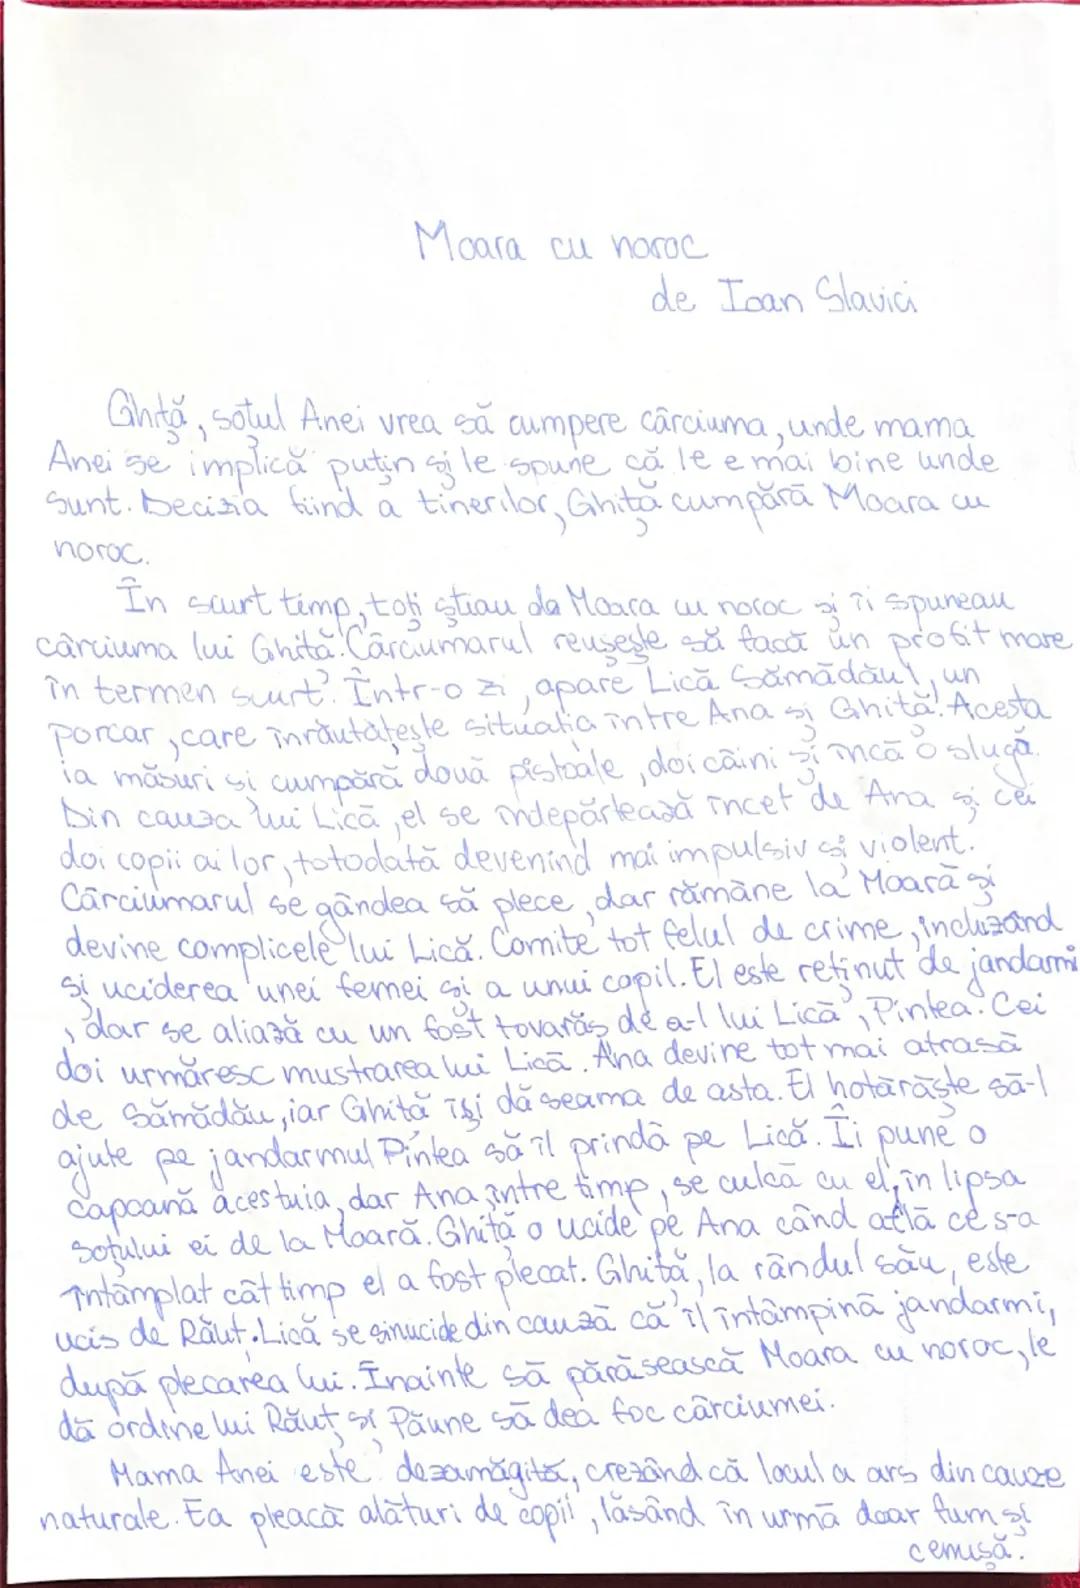 Moara cu noroc
de Ioan Slavici
Ghiță, soțul Anei vrea să cumpere cârciuma, unde mama
Anei se implică puțin și le spune că le e mai bine unde
sunt. Decizia fiind a tinerilor, Ghiță cumpără Moara cu
noroc.
În scurt timp, toți știau da Moara cu noroc și îi spuneau
cârciuma lui Ghiță. Cârciumarul reușește să facă un profit mare
în termen scurt. Într-o zi, apare Lică Sămădăul, un
porcar, care înrăutățește situația între Ana și Ghiță. Acesta
ia măsuri și cumpără două pistoale, doi câini și încă o slugă.
Din cauza lui Lică, el se îndepărtează încet de Ana și cei
doi copii ai lor, totodată devenind mai impulsiv și violent.
Cârciumarul se gândea să plece, dar rămâne la Moară și
devine complicele lui Lică. Comite tot felul de crime, incluzând
și uciderea unei femei și a unui copil. El este reținut de jandarmi
, dar se aliază cu un fost tovarăș de a-l lui Lică, Pintea. Cei
doi urmăresc mustrarea lui Lică. Ana devine tot mai atrasă
de Sămădău, iar Ghiță își dă seama de asta. El hotărăște să-l
ajute pe jandarmul Pintea să îl prindă pe Lică. Îi pune o
capcană acestuia, dar Ana, între timp, se culcă cu el, în lipsa
soțului ei de la Moară. Ghiță o ucide pe Ana când află ce s-a
întâmplat cât timp el a fost plecat. Ghiță, la rândul său, este
ucis de Răuț. Lică se sinucide din cauză că îl întâmpină jandarmi,
după plecarea lui. Înainte să părăsească Moara cu noroc, le
dă ordine lui Răuț și Păune să dea foc cârciumei.
Mama Anei este dezamăgită, crezând că locul a ars din cauze
naturale. Ea pleacă alături de copii, lăsând în urmă doar fum și
cenușă.